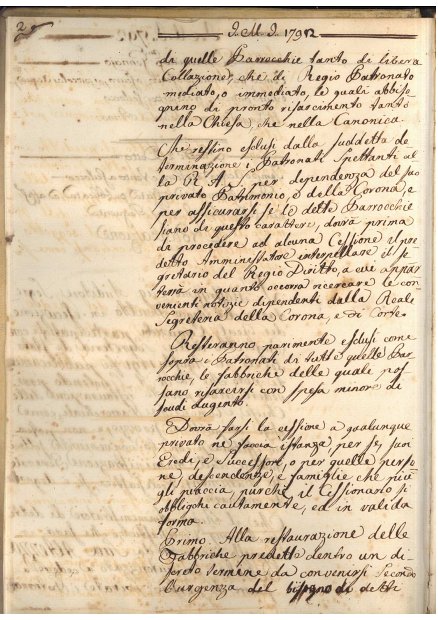 2
J. M. J. 1792
di quelle Parrocchie tanto di libera
Collazione, che di Regio Patronato
mediato, o immediato, le quali abbiso
gnino di pronto risarcimento tanto
nella Chiesa, che nella Canonica.
Che restino esclusi dalla suddetta de
terminazione i Patronati Spettanti al
la R. A. S. per dependenza del suo
privato Patrimonio, o della Corona, e
per assicurarsi se le dette Parrocchie
siano di questo carattere, dovrà prima
di procedere ad alcuna Cessione il pre
detto Amministratore interpellare il Se
gretario del Regio Diritto, a cui appar
terrà in quanto occorra ricercare le con
venienti notizie dipendenti dalla Reale
Segreteria della Corona, e di Corte.
Resteranno parimente esclusi come
sopra i Patronati di tutte quelle Par
rocchie, le fabbriche delle quali pos
sano risarcirsi con spesa minore di
scudi dugento.
Dovrà farsi la cessione a qualunque
privato ne faccia istanza, per se, suoi
Eredi, e Successori, o per quelle perso
ne, descendenze, e famiglie che più
gli piaccia, purchè il Cessionario si
obblighi cautamente, ed in valida
forma.
Primo. Alla restaurazione delle
Fabbriche predette dentro un di
screto termine da convenirsi Secondo
l'urgenza del bisogno di detti